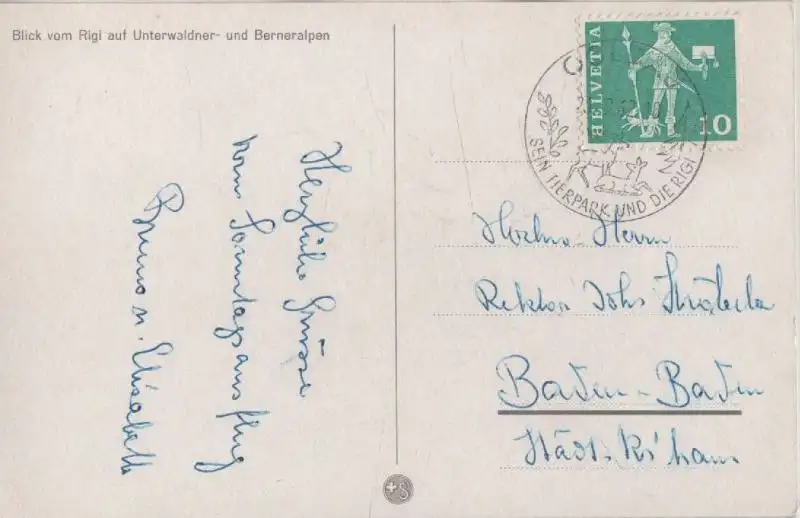 Blick vom Rigi auf Unterwaldner- und Berneralpen
Herzliche Grüsse
vom Sonntagsausflug
Bruno u. Elisabeth
HELVETIA
10
SEIN TIERPARK UND DIE RIGI
Hochw. Herrn
Rektor Johs
Baden-Baden
Städt. Kr'haus
+S